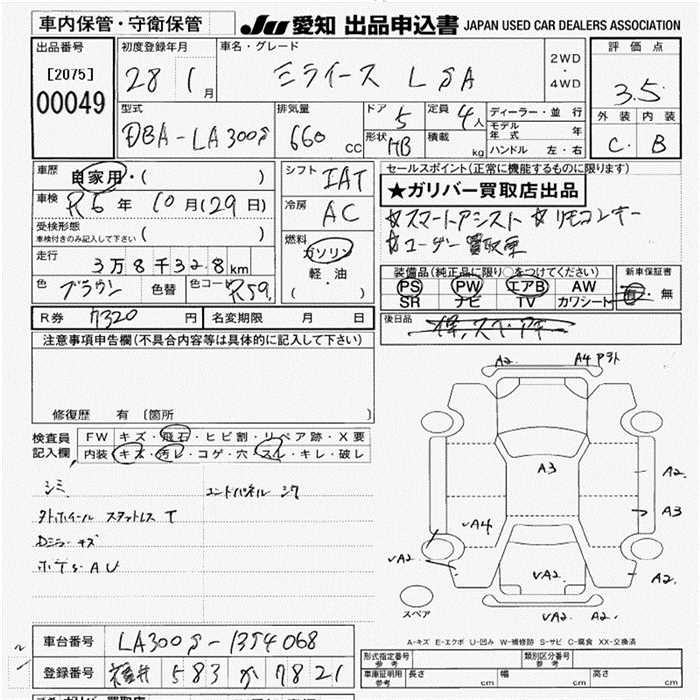 車内保管・守衛保管
JU 愛知 出品申込書 JAPAN USED CAR DEALERS ASSOCIATION
出品番号 [2075] 00049
初度登録年月 28 1月
車名・グレード ミライース L SA
2WD・4WD
評価点 3.5
外装 内装
C. B
型式 DBA-LA300S
排気量 660 CC
ドア 5
形状 HB
定員 4人
積載 kg
ディーラー・並行
モデル年式 年
ハンドル 左・右
車歴 自家用・( )
車検 R6年10月(29日)
受検形態 ( )
車検付きのみ記入して下さい
走行 3万8千32.8km
色 ブラウン 色替 色コード R59
シフト IAT
冷房 AC
燃料 ガソリン・軽油
( )
セールスポイント(正常に機能するものに限ります)
★ガリバー買取店出品
☆スマートアシスト ☆リモコンキー
☆ユーザー買取車
装備品(純正品に限り〇をつけてください)
PS PW エアB AW
SR ナビ TV カワシート
新車保証書
有・無
後日品
R券 7320円
名変期限 月 日
注意事項申告欄(不具合内容等は具体的に記入して下さい)
修復歴 有 〔箇所 〕
検査員記入欄
FW キズ・飛石・ヒビ割・リペア跡・X要
内装 キズ・汚レ・コゲ・穴・スレ・キレ・破レ
シミ
エンドパネル シワ
タイヤホイール スタットレス T
Dミラーキズ
ボデーAU
A2 A4
A3
A2
A3
A4
A2
A2
A2
A2 A2
スペア
A-キズ E-エクボ U-凹み W-補修跡 S-サビ C-腐食 XX-交換済
車台番号 LA300S-1354068
登録番号 福井 583 か 7821
形式指定番号 参考
類別区分番号 参考
車庫証明用 参考 長さ 幅 高さ
cm cm cm